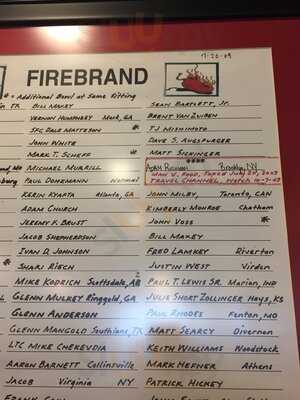 7-20-09
FIREBRAND
* = Additional Bowl at Same Sitting
BILL MAXEY
SEAN BARTLETT, Jr.
VERNON HUMPHREY Mack, GA
BRENT VAN ZUIDEN
SFC DALE MATTESON *
TJ MISHIMOTO
JOHN WHITE
DAVE S. AUGSPURGER
MARK T. SCHEFF *
MATT SICKINGER
MICHAEL MURRILL
ADAM RICHMAN Brooklyn, NY
MAN V. FOOD, TAPED JULY 20, 2009
TRAVEL CHANNEL
PAUL DONEMANN Normal
KERIN KYAFTA Atlanta, GA
JOHN MILBY, Toronto, CAN
ADAM CHURCH
KIMBERLY MONROE Chatham
JEREMY F. BRUST
JOHN VOSS *
JACOB SHEPHERDSON
BILL MAXEY
IVAN D. JOHNSON
FRED LAMKEY Riverton
* SHARI RIECH
JUSTIN WEST Virden
MIKE KODRICH Scottsdale, AZ
PAUL T. LEWIS SR. Marion, IND
GLENN MULKEY Ringgold, GA
JULIE SHORT ZOLLINGER Hays, KS
GLENN ANDERSON
PAUL RHODES Fenton, MO
GLENN MANGOLD Southlane, TX
MATT SEARCY Divernon
LTC MIKE CHEKEVDIA
KEITH WILLIAMS Woodstock
AARON BARNETT Collinsville
MARK HEFNER Athens
JACOB Virginia NY
PATRICK HICKEY